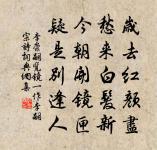 歲去紅顏盡
愁來白髮新
今朝開鏡匣
疑是別逢人
李崇嗣覽鏡一作李嗣
宗詩詞典網集